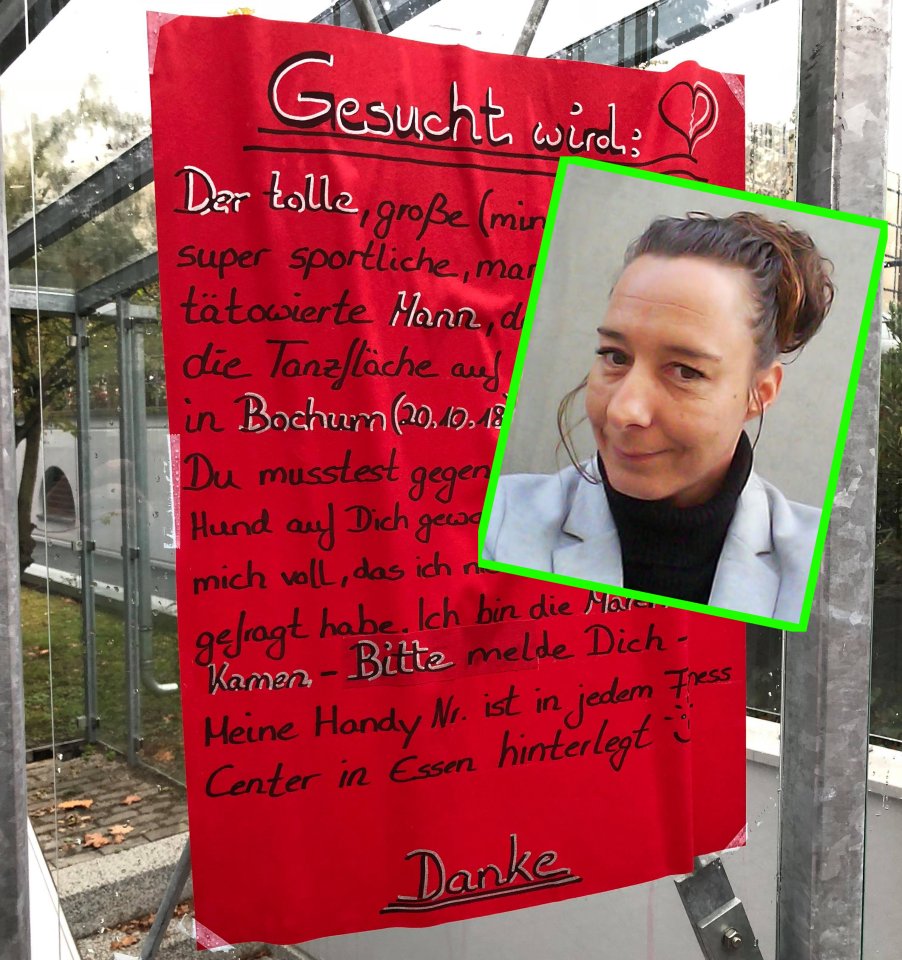 Gesucht wird:
Der tolle, große (min
super sportliche,
tätowierte Mann,
die Tanzfläche auf
in Bochum (20.10.18)
Du musstest gegen
Hund auf Dich
mich voll, das ich
gefragt habe. Ich bin die
Kamen - Bitte melde Dich -
Meine Handy Nr. ist in jedem
Center in Essen hinterlegt
Danke